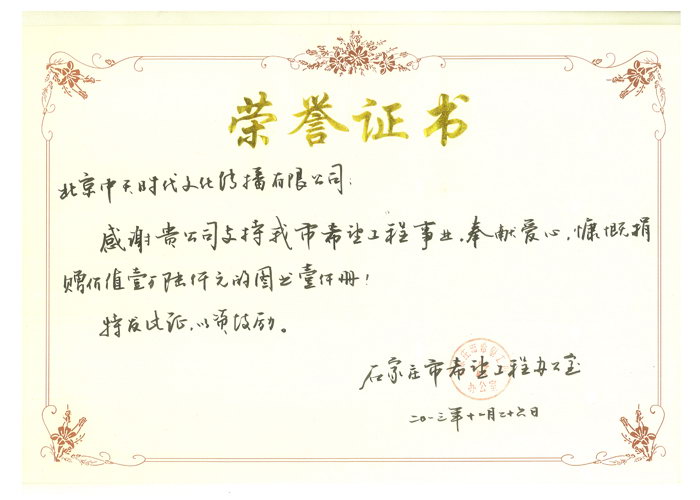 荣誉证书
北京中天时代文化传播有限公司：
感谢贵公司支持我市希望工程事业，奉献爱心，慷慨捐
赠价值壹万陆仟元的图书壹仟册！
特发此证，以资鼓励。
石家庄市希望工程办公室
二〇一三年十一月二十六日